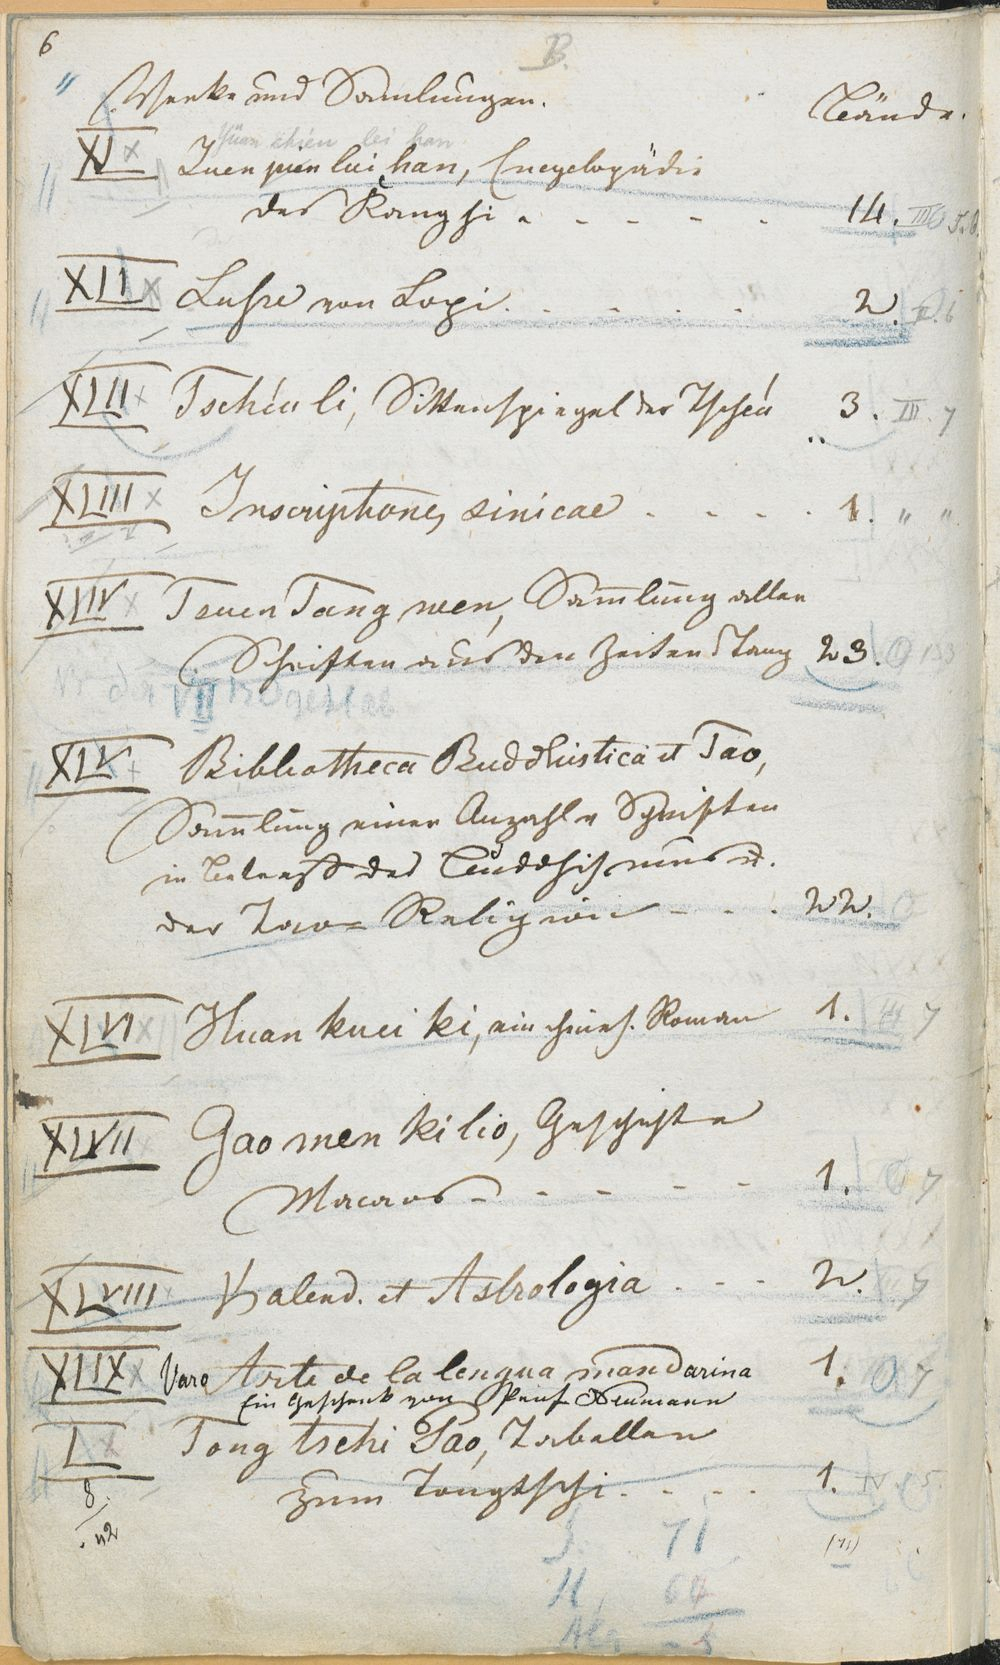 6
B.
Werke und Samlungen. Bände.
Yüan chien lei han
XL Juen pien lui han, Encyclopädie
des Kanghi . - - - - 14.
XLI Luhre von Lopi . . . . . 2.
XLII Tschéu li, Sittenspiegel der Tschéu 3. III. 7
XLIII Inscriptiones sinicae . . . . 1. " "
XLIV Tsuen Tang wen, Sam̄lung aller
Schriften aus den Zeiten d Tang 23.
XLV Bibliotheca Buddhistica et Tao,
Sam̄lung einer Anzahl v Schriften
in Betreff des Buddhismus u.
der Tao= Religion - - . 22.
XLVI Huan kuei ki, ein chines. Roman 1. 7
XLVII Gao men ki lio, Geschichte
Macaos - - - - - 1. 7
XLVIII Kalend. et Astrologia . - - 2. 7
XLIX Varo Arte de la lengua mandarina 1. 7
Ein Geschenk von Prof. Neumann
L Tong tschi Tao, Tabellen
zum Tongtschi . . . . 1. IV
8.
42
71 (71)
II, 64